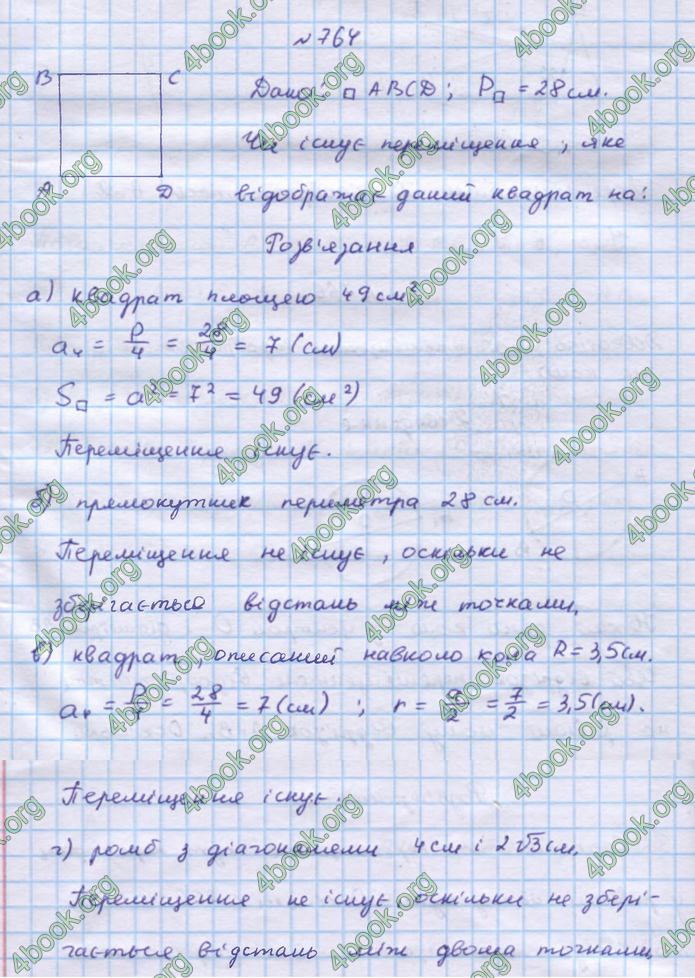 № 764
B C
Дано: □ ABCD; P□ = 28 см.
Чи існує переміщення, яке
A D
відображає даний квадрат на:
Розв'язання
а) квадрат площею 49 см²
a₄ = P/4 = 28/4 = 7 (см)
S□ = a² = 7² = 49 (см²)
Переміщення існує.
б) прямокутник периметра 28 см.
Переміщення не існує, оскільки не
зберігається відстань між точками.
в) квадрат, описаний навколо кола R = 3,5 см.
a₄ = P/4 = 28/4 = 7 (см); r = a/2 = 7/2 = 3,5 (см).
Переміщення існує.
г) ромб з діагоналями 4 см і 2√3 см.
Переміщення не існує, оскільки не збері-
гається відстань між двома точками.
4book.org